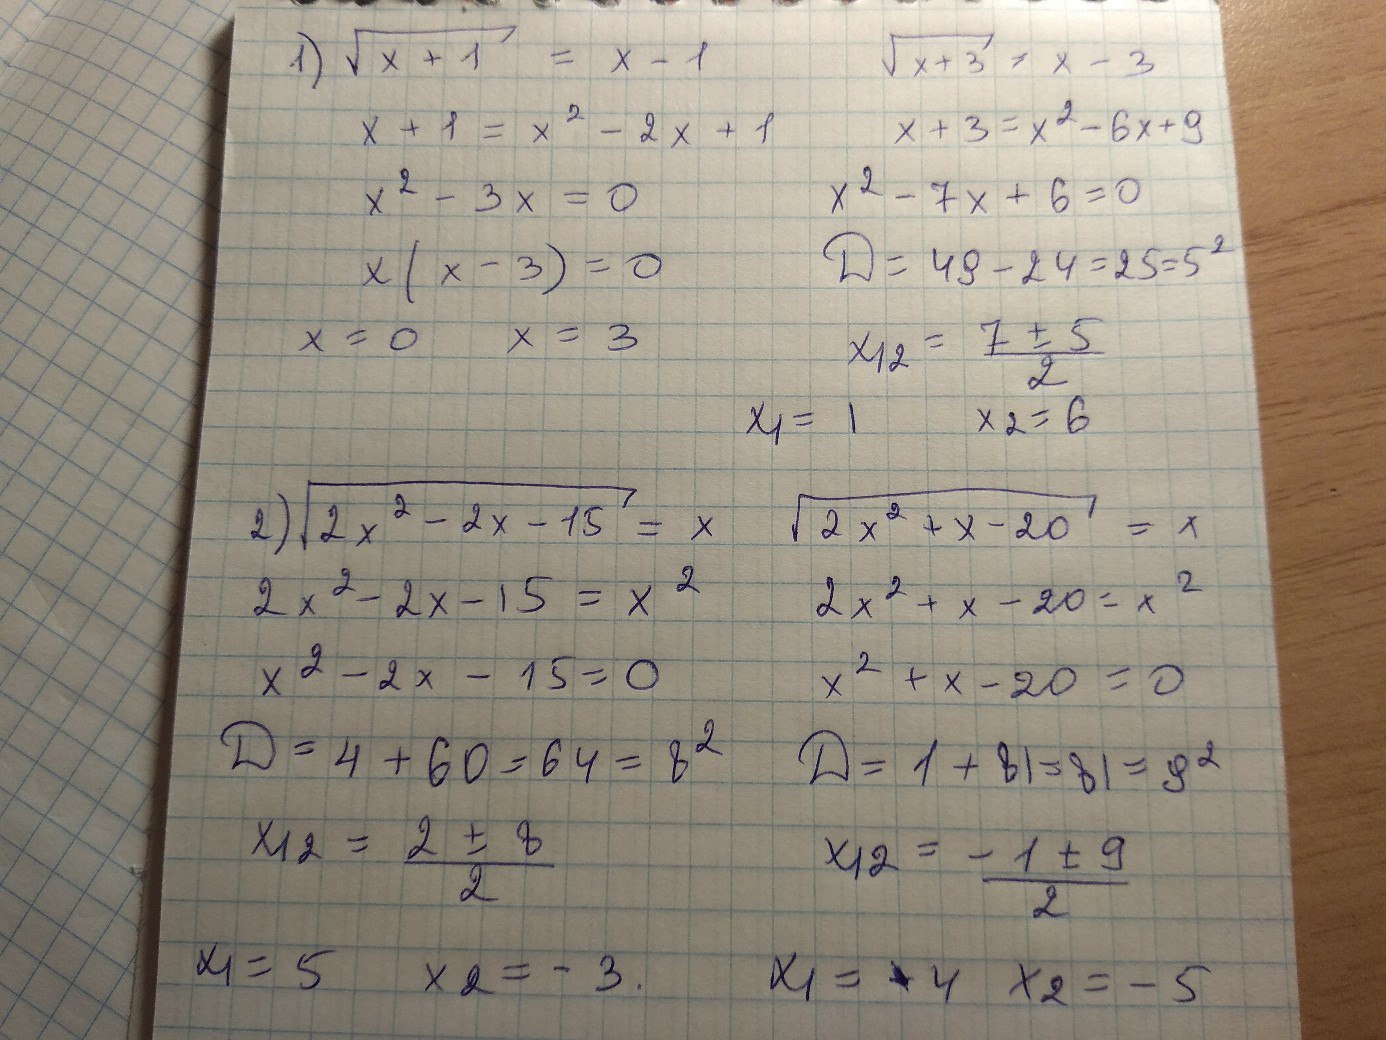 1) √(x + 1) = x - 1
x + 1 = x² - 2x + 1
x² - 3x = 0
x(x - 3) = 0
x = 0 x = 3
√(x + 3) = x - 3
x + 3 = x² - 6x + 9
x² - 7x + 6 = 0
D = 49 - 24 = 25 = 5²
x₁₂ = (7 ± 5)/2
x₁ = 1 x₂ = 6
2) √(2x² - 2x - 15) = x
2x² - 2x - 15 = x²
x² - 2x - 15 = 0
D = 4 + 60 = 64 = 8²
x₁₂ = (2 ± 8)/2
x₁ = 5 x₂ = - 3.
√(2x² + x - 20) = x
2x² + x - 20 = x²
x² + x - 20 = 0
D = 1 + 81 = 81 = 9²
x₁₂ = (- 1 ± 9)/2
x₁ = 4 x₂ = - 5